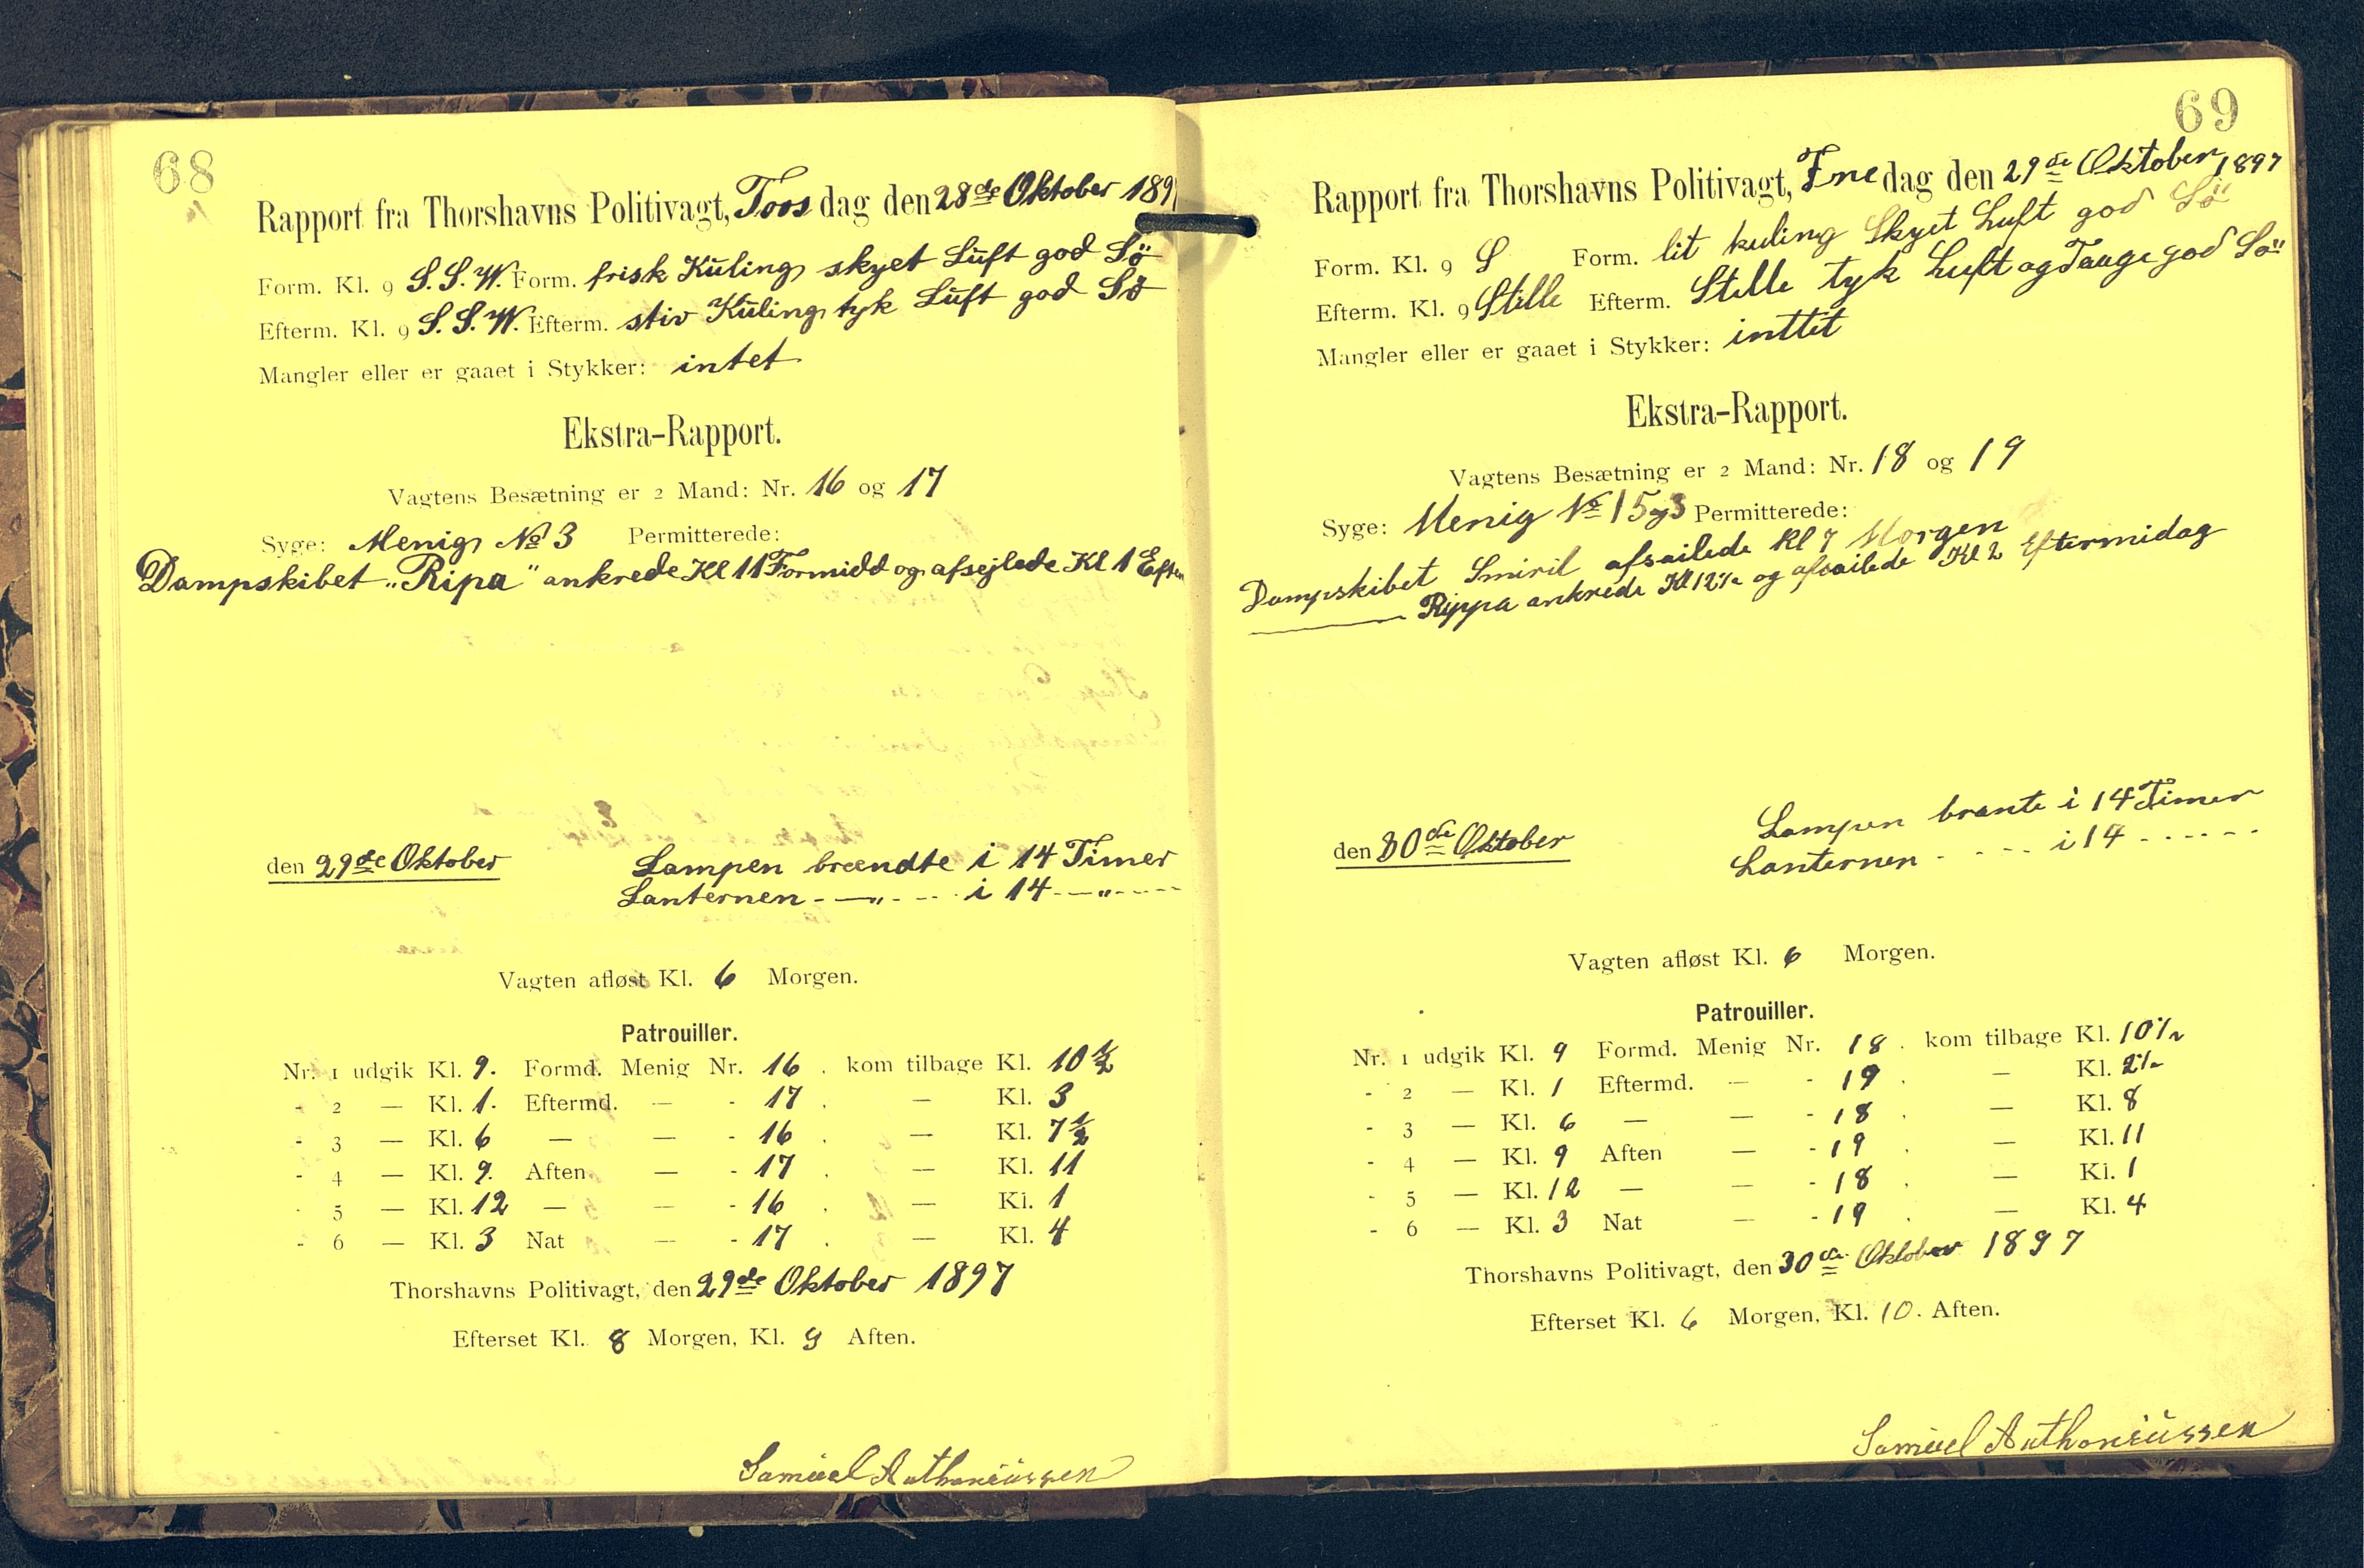 68
Rapport fra Thorshavns Politivagt, Torsdag den 28de Oktober 189
Form. Kl. 9 S. S. W. Form. frisk Kuling skyet Luft god Sö
Efterm. Kl. 9 S. S. W. Efterm. stiv Kuling tyk Luft god Sö
Mangler eller er gaaet i Stykker: intet
Ekstra-Rapport.
Vagtens Besætning er 2 Mand: Nr. 16 og 17
Syge: Menig No 3 Permitterede:
Dampskibet „Ripa" ankrede Kl 11 Formidd og afsejlede Kl 1 Eftm
den 29de Oktober
Lampen brændte i 14 Timer
Lanternen - —„- - -- i 14 -—„----
Vagten afløst Kl. 6 Morgen.
Patrouiller.
Nr. 1 udgik Kl. 9. Formd. Menig Nr. 16 . kom tilbage Kl. 10 1/2
- 2 — Kl. 1. Eftermd. — - 17 . — Kl. 3
- 3 — Kl. 6 — — - 16 . — Kl. 7 1/2
- 4 — Kl. 9. Aften — - 17 . — Kl. 11
- 5 — Kl. 12 — — - 16 . — Kl. 1
- 6 — Kl. 3 Nat — - 17 . — Kl. 4
Thorshavns Politivagt, den 29de Oktober 1897
Efterset Kl. 8 Morgen, Kl. 9 Aften.
Samúel Anthoniússen
69
Rapport fra Thorshavns Politivagt, Fredag den 29de Oktober 1897
Form. Kl. 9 S Form. lit kuling Skyet Luft god Sö
Efterm. Kl. 9 Stille Efterm. Stille tyk Luft og Taage god Sö
Mangler eller er gaaet i Stykker: inttit
Ekstra-Rapport.
Vagtens Besætning er 2 Mand: Nr. 18 og 19
Syge: Menig No 15 og 3 Permitterede:
Dampskibet Smiril afsailede Kl 7 Morgen
——— Rippa ankrede Kl 12 1/2 og afsailede Kl 2 Eftermidag
den 30de Oktober
Lampen brante i 14 Timer
Lanternen - - - - - i 14 - - - - - -
Vagten afløst Kl. 6 Morgen.
Patrouiller.
Nr. 1 udgik Kl. 9 Formd. Menig Nr. 18 . kom tilbage Kl. 10 1/2
- 2 — Kl. 1 Eftermd. — - 19 . — Kl. 2 1/2
- 3 — Kl. 6 — — - 18 . — Kl. 8
- 4 — Kl. 9 Aften — - 19 . — Kl. 11
- 5 — Kl. 12 — — - 18 . — Kl. 1
- 6 — Kl. 3 Nat — - 19 . — Kl. 4
Thorshavns Politivagt, den 30de Oktober 1897
Efterset Kl. 6 Morgen, Kl. 10. Aften.
Samúel Anthoniússen